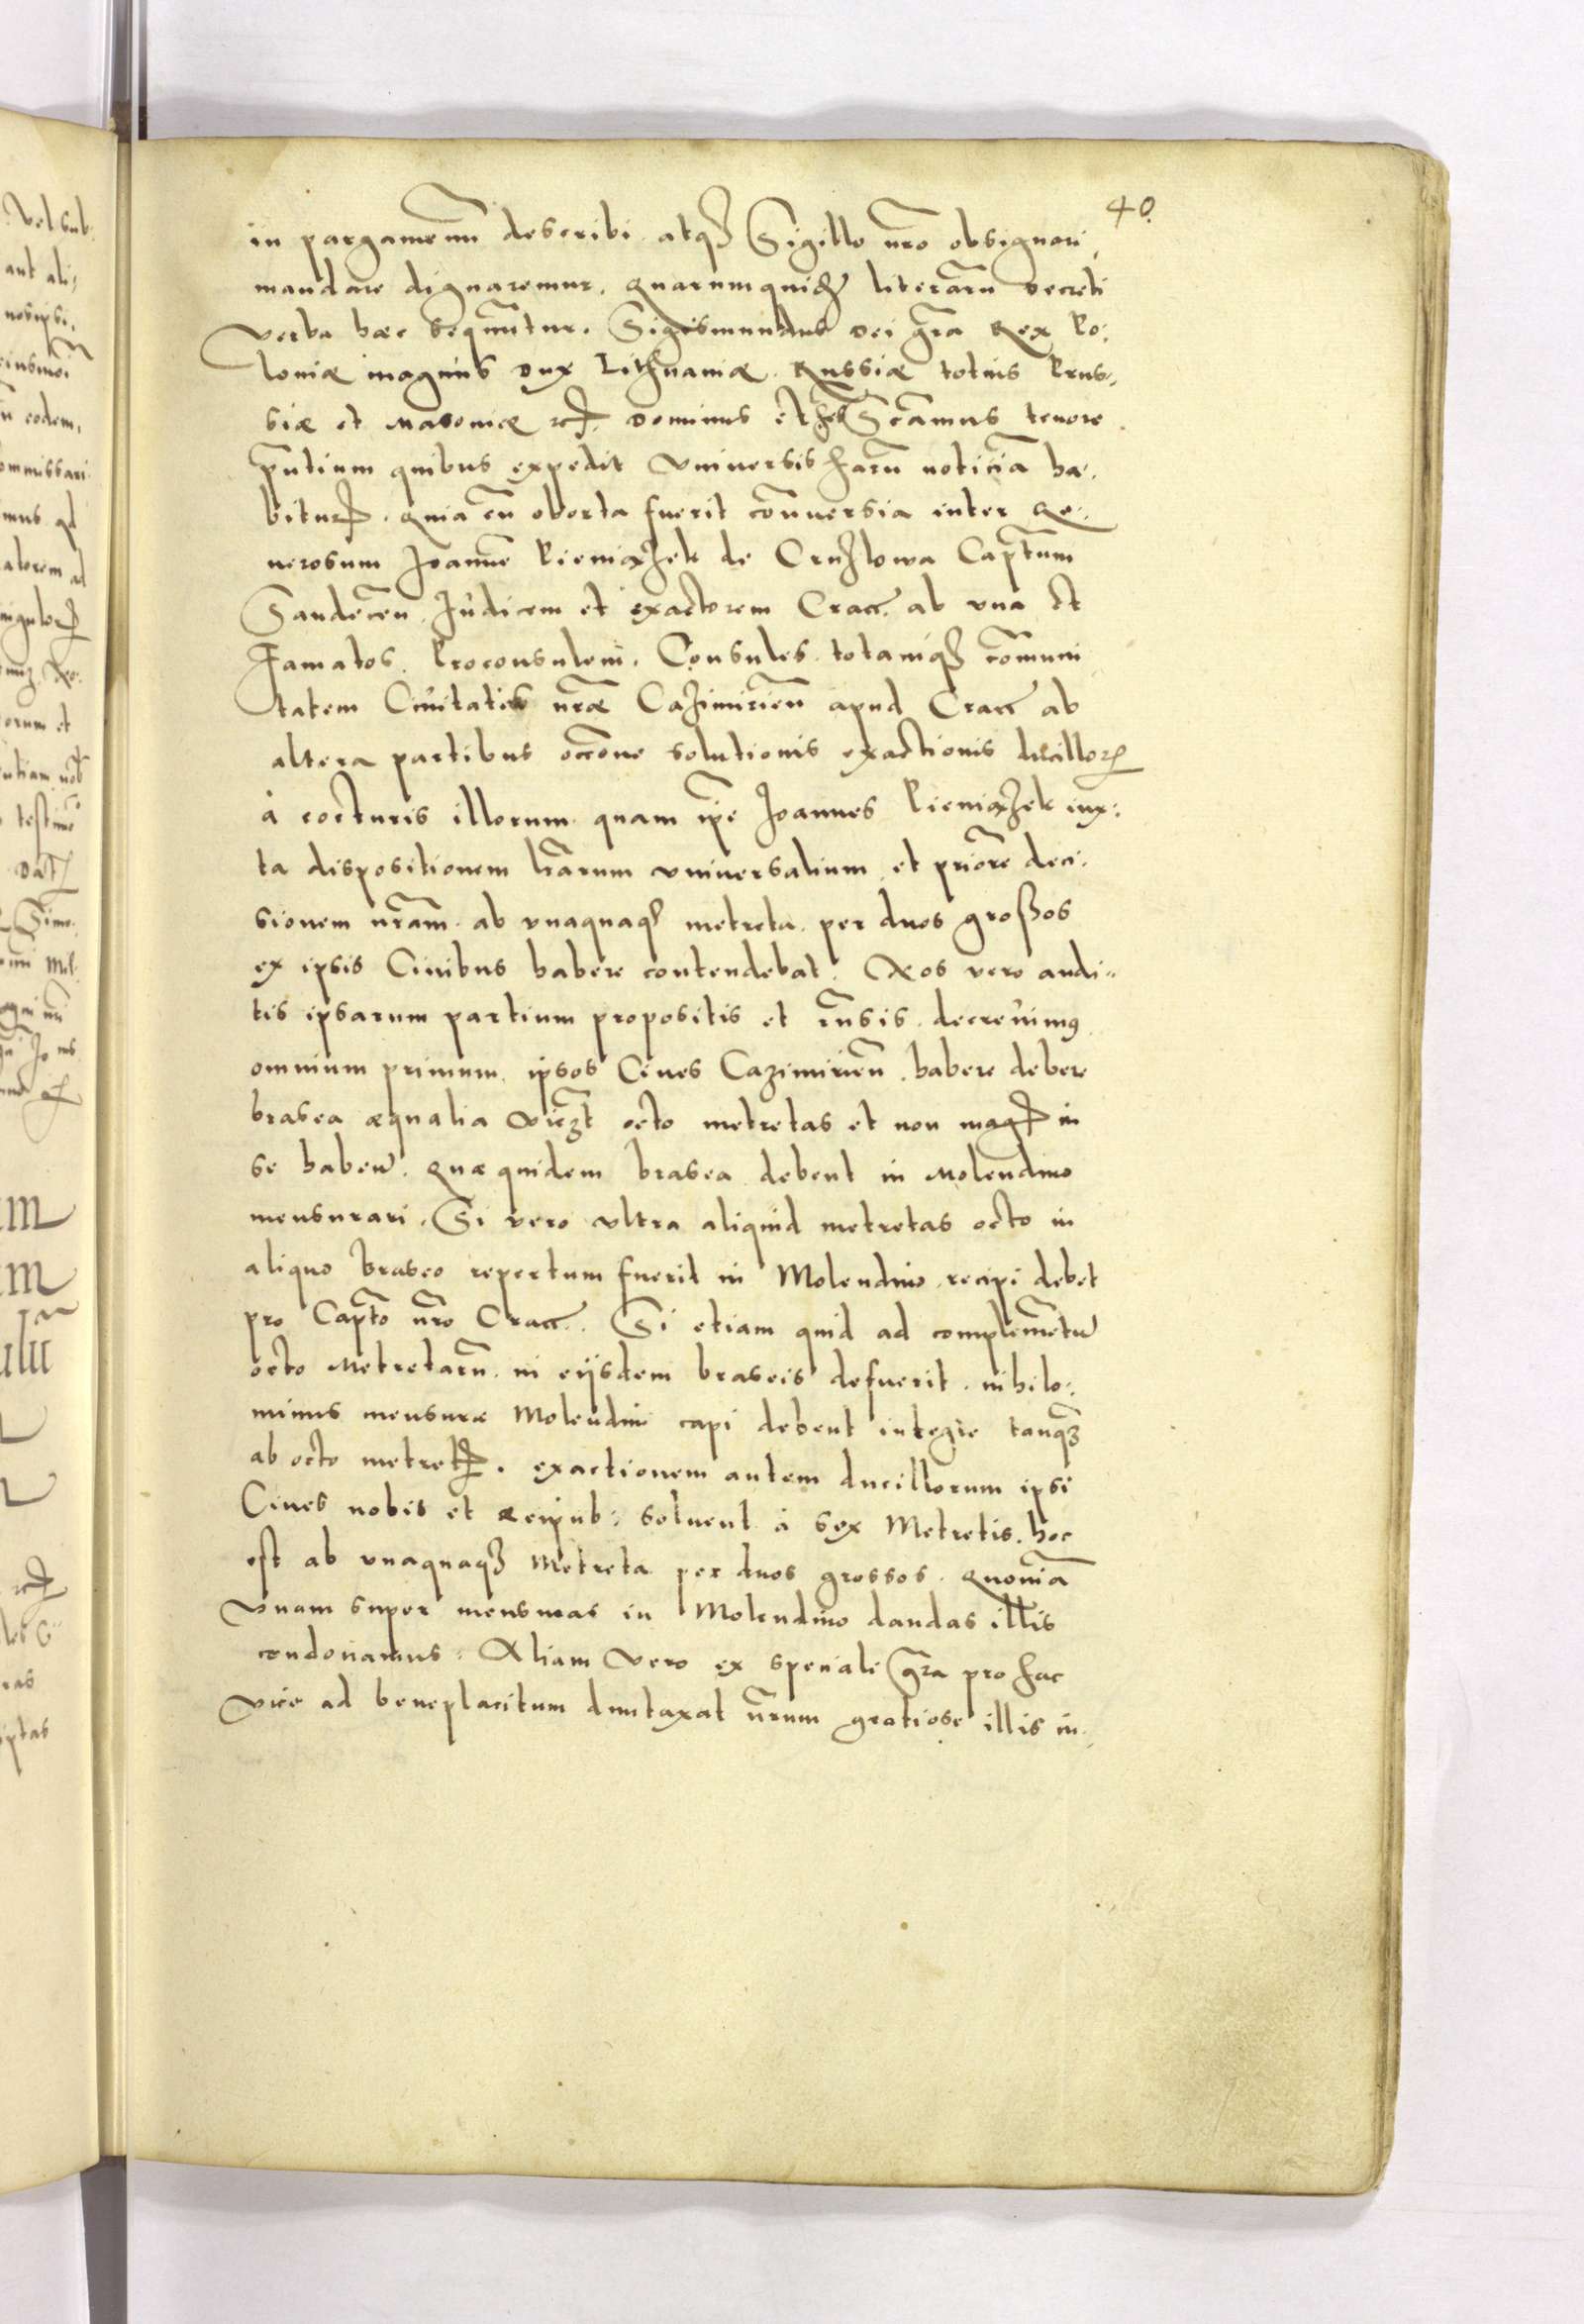 40.
in pargamenũ describi atqꝫ Sigillo nr̃o obsignari,
mandare dignaremur. quarumquidẽ literarũ decreti
verba hæc sequũtur. Sigismundus dei gr̃a Rex Po:
loniæ magnus dux Lithuaniæ Russiæ totius Prus:
siæ et Masoniæ etc̃ dominus et hęres Sc̃amus tenore
p̃ntium quibus expedit vniversis harũ noticiã ha:
bituris. quia cũ oborta fuerit cõnversia inter Ge:
nerosum Joannẽ Pieniąžek de Crużlowa Capt̃um
Sandecẽn Judicem et exactorem Cracc̃ ab vna et
Famatos Proconsulem, Consules totamqꝫ com̃uni
tatem Ciuitatis nr̃æ Cazimirieñ apud Cracc̃ ab
altera partibus occõne solutionis exactionis ducilloꝝ
à cocturis illorum quam ip̃e Joannes Pieniążek iux:
ta dispositionem lr̃arum vniversalium et priorẽ deci:
sionem nr̃am ab vnaquaqꝫ metreta per duos großos
ex ipsis Ciuibus habere contendebat. Nos vero audi:
tis ipsarum partium propositis et rñsis decreuimꝰ
omnium primum ipsos Ciues Cazimirieñ habere debere
brasea æqualia vicꝫt octo metretas et non magis in
se habeñ. quæ quidem brasea debent in Molendino
mensurari. Si vero vltra aliquid metretas octo in
aliquo braseo repertum fuerit in Molendino recipi debet
pro Capt̃o nr̃o Cracc̃. Si etiam quid ad complemẽtũ
octo Metretarũ in eijsdem braseis defuerit. nihilo:
minus mensuræ Molendini capi debent integre tanqꝫ
ab octo metretis. exactionem autem ducillorum ipsi
Ciues nobis et Reipub: soluent à sex Metretis. hoc
est ab vnaquaqꝫ Metreta per duos grossos. quoniã
vnam super mensuras in Molendino dandas illis
condonamus. Aliam vero ex speciali gr̃a pro hac
vice ad beneplacitum duntaxat nr̃um gratiose illis in: